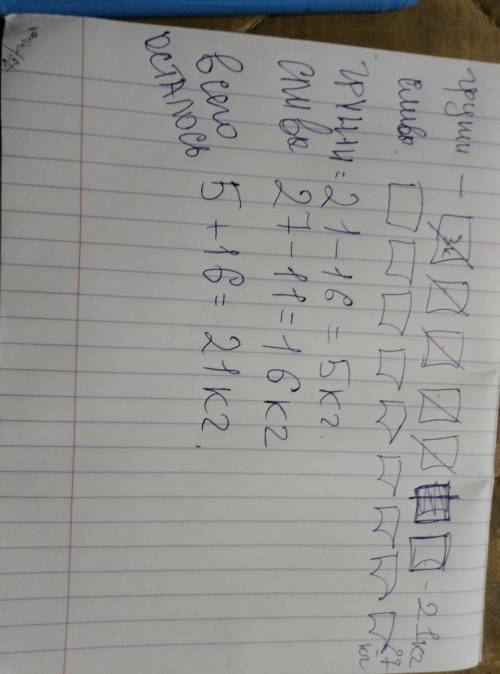 груши — - 21 кг
сливы. 27 кг
груши = 21 - 16 = 5 кг.
сливы 27 - 11 = 16 кг
всего 5 + 16 = 21 кг.
осталось